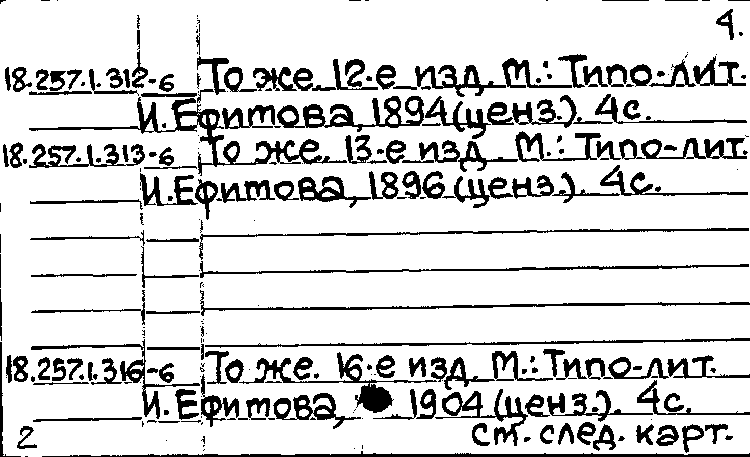 4.
18.257.1.312-6 То же. 12-е изд. М.: Типо-лит.
И. Ефимова, 1894 (ценз.). 4с.
18.257.1.313-6 То же. 13-е изд. М.: Типо-лит.
И. Ефимова, 1896 (ценз.). 4с.
18.257.1.316-6 То же. 16-е изд. М.: Типо-лит.
И. Ефимова, 1904 (ценз.). 4с.
2 см. след. карт.